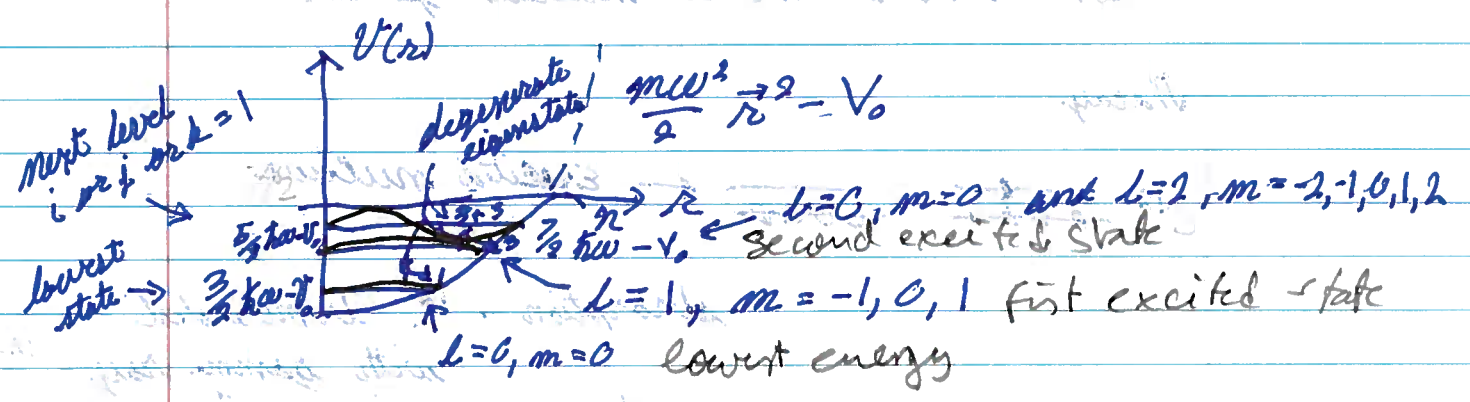 V(r)
degenerate
eigenstates
mω²/2 r⃗² - V₀
next level
i or j or k = 1
r
l=0, m=0 and l=2, m=-2,-1,0,1,2
5/2 ħω-V₀
7/2 ħω - V₀
second excited state
lowest
state
3/2 ħω-V₀
l = 1, m = -1, 0, 1 first excited state
l=0, m=0 lowest energy